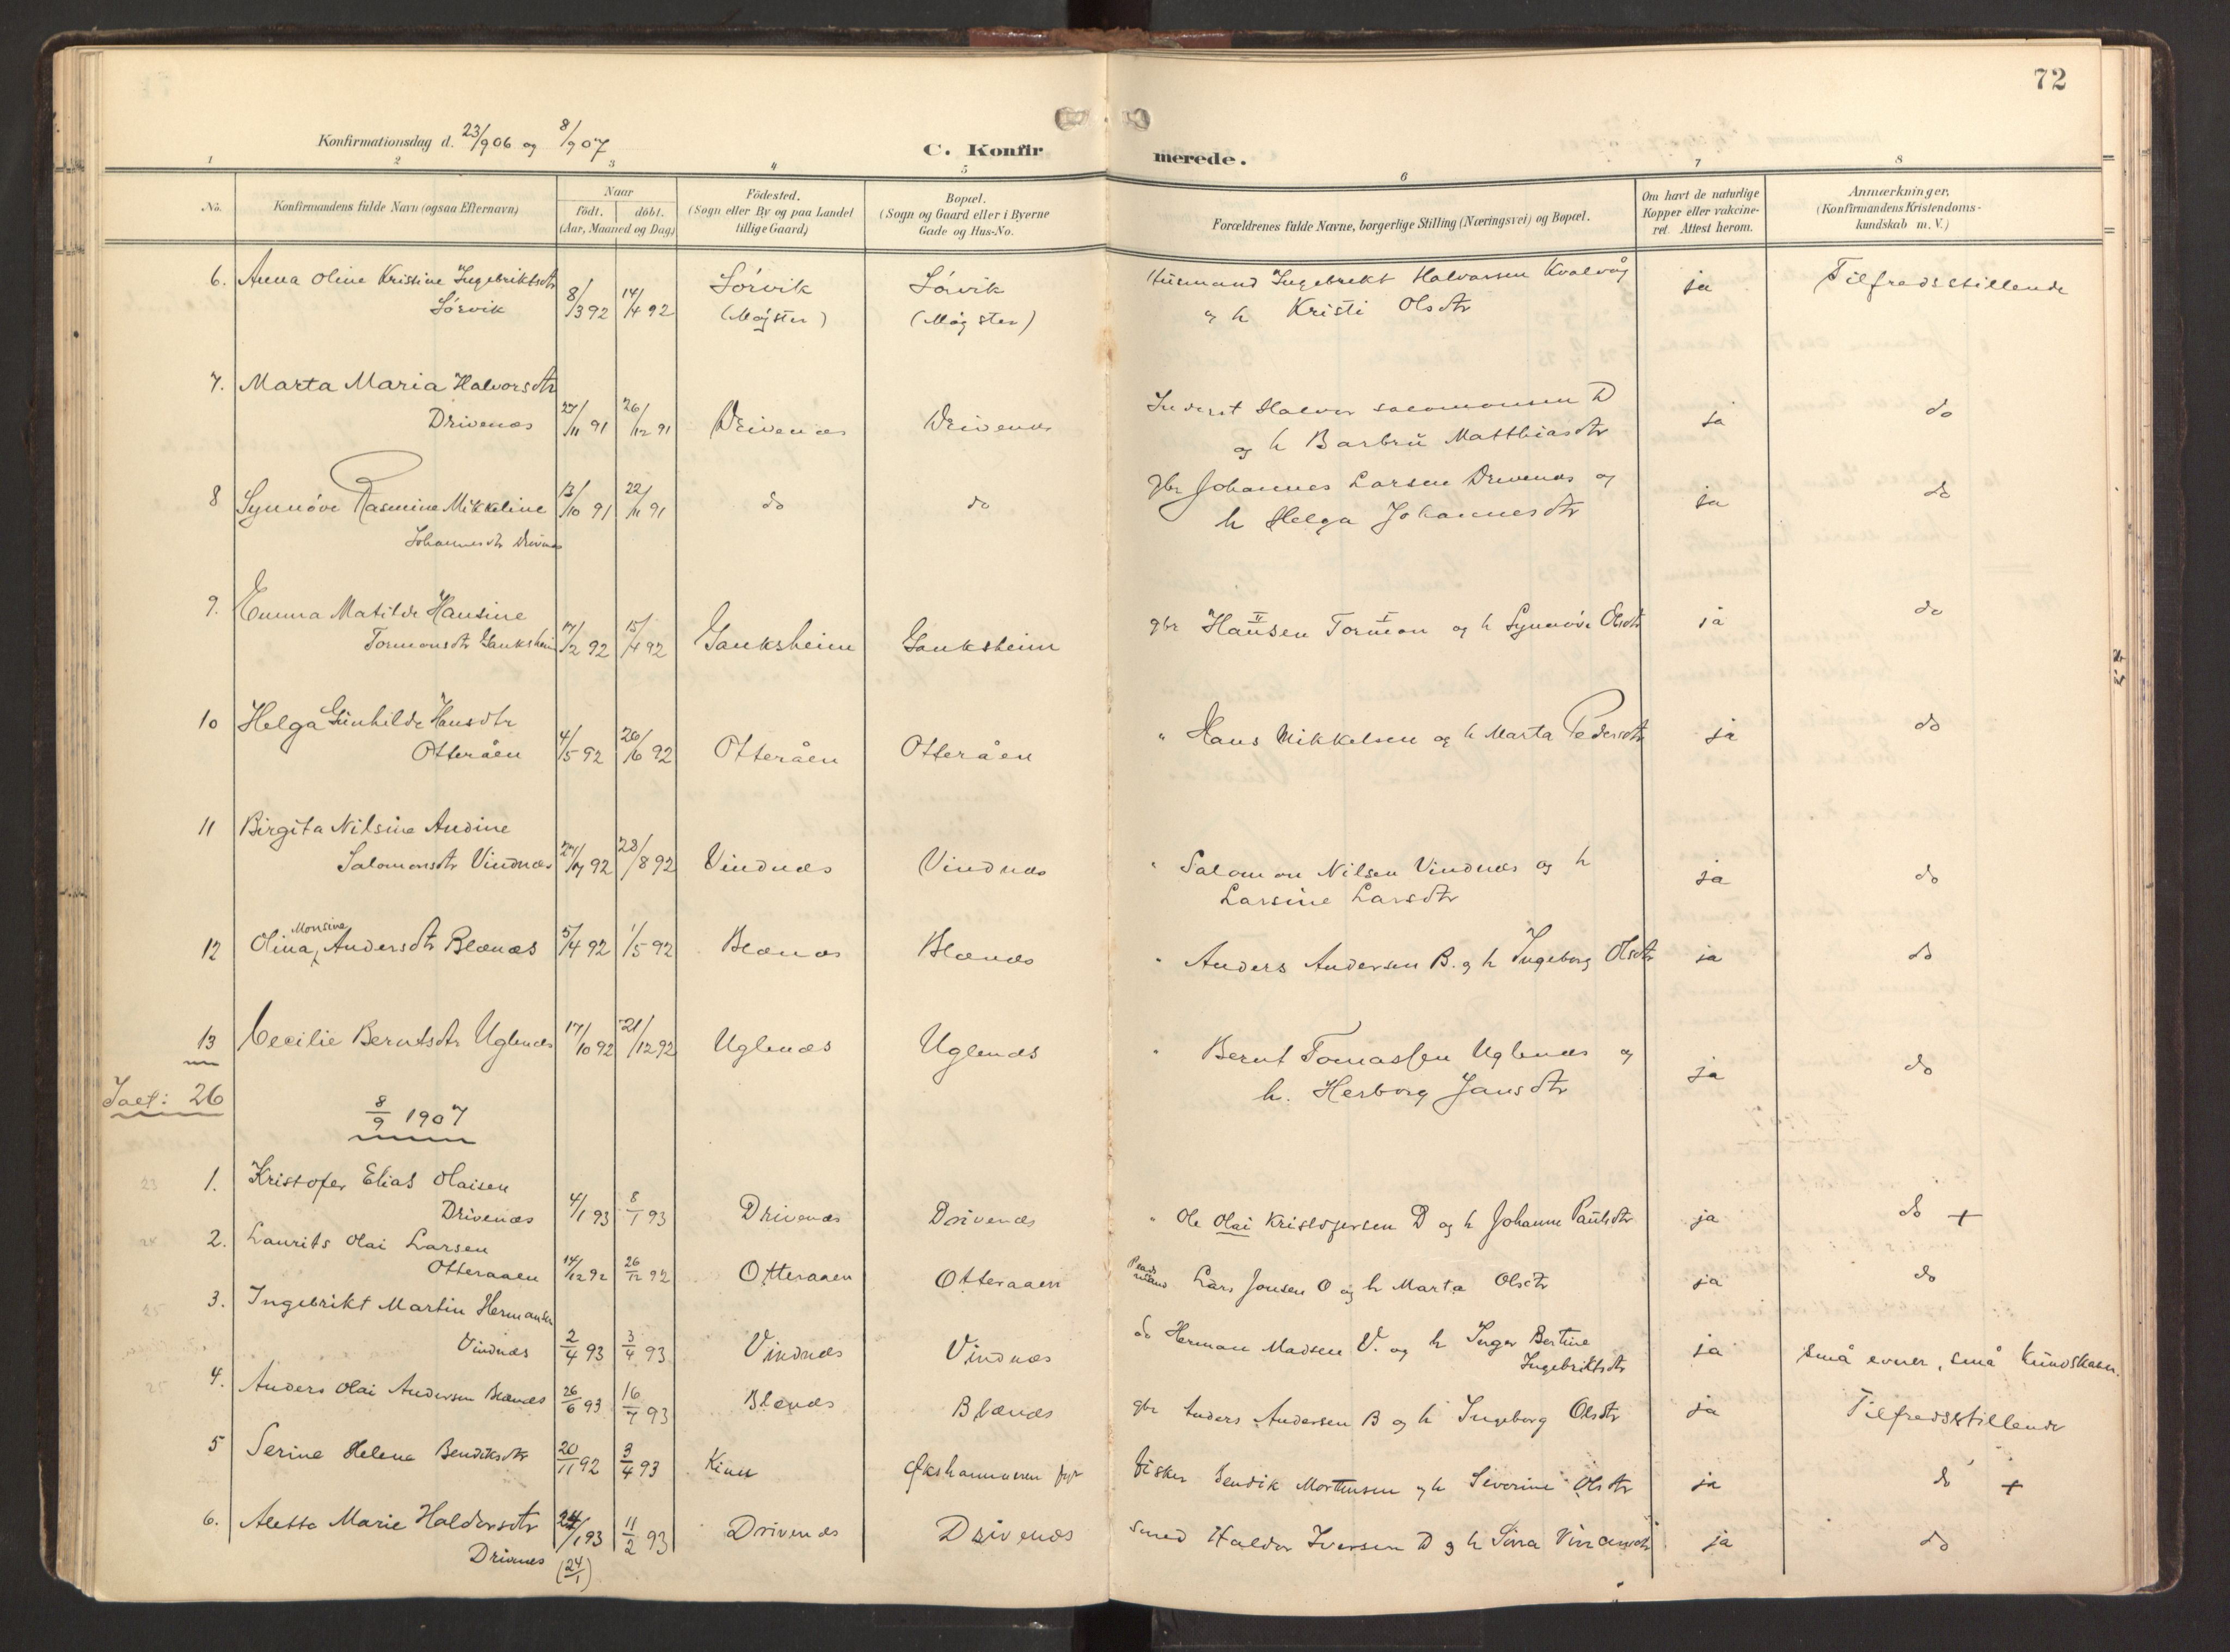 72
Konfirmationsdag d. 23/9 06 og 8/9 07
C. Konfirmerede.
1 2 3 4 5 6 7 8
No.
Konfirmandens fulde Navn (ogsaa Efternavn)
Naar
födt. döbt.
(Aar, Maaned og Dag)
Födested.
(Sogn eller By og paa Landet
tillige Gaard)
Bopæl.
(Sogn og Gaard eller i Byerne
Gade og Hus-No.
Forældrenes fulde Navne, borgerlige Stilling (Næringsvei) og Bopæl.
Om havt de naturlige
Kopper eller vakcine-
ret. Attest herom.
Anmærkninger.
(Konfirmandens Kristendoms-
kundskab m. V.)
6. Anna Oline Kristine Ingebriktsdtr
Sórvik 8/3 92 14/4 92 Sórvik (Møgster) Sórvik (Møgster)
Husmand Ingebrekt Halvorsen Kvalvåg
og h Kristi Olsdtr ja Tilfredsstillende
7. Marta Maria Halvorsdtr
Drivenæs 27/11 91 26/12 91 Drivenæs Drivenæs
Inderst Halvor Salomonsen D
og h Barbru Matthiasdtr ja do
8 Synnóve Rasmine Mikkeline
Johannesdtr Drivenæs 13/10 91 22/11 91 do do
gbr Johannes Larsen Drivenæs og
h Helga Johannesdtr ja do
9. Emma Matilde Hansine
Tormonsdtr Gauksheim 17/2 92 15/4 92 Gauksheim Gauksheim
gbr Hansen Tormon og h Synnóve Olsdtr ja do
10 Helga Gunhilde Hansdtr
Otteråen 4/5 92 26/6 92 Otteråen Otteråen
" Hans Mikkelsen og h Marta Pedersdtr ja do
11 Birgita Nilsine Andine
Salomonsdtr Vindnæs 27/7 92 28/8 92 Vindnæs Vindnæs
" Salomon Nilsen Vindnæs og h
Larsine Larsdtr ja do
Monsine
12 Olina Andersdtr Blænæs 5/4 92 1/5 92 Blænæs Blænæs
" Anders Andersen B. og h Ingeborg Olsdtr ja do
13 Cecilie Berntsdtr Uglenæs 17/10 92 21/12 92 Uglenæs Uglenæs
" Bernt Tomassen Uglenæs og
h. Herborg Jansdtr ja do
Ialt: 26
8/9 1907
1. Kristofer Elias Olaisen
Drivenæs 4/1 93 8/1 93 Drivenæs Drivenæs
" Ole Olai Kristofersen D og h Johanne Paulsdtr ja do +
2. Laurits Olai Larsen
Otteraaen 14/12 92 26/12 92 Otteraaen Otteraaen
Lars Jonsen O og h Marta Olsdtr ja do
3. Ingebrikt Martin Hermansen
Vindnæs 2/4 93 3/4 93 Vindnæs Vindnæs
do Herman Madsen V. og h Inger Bertine
Ingebriktsdtr ja små evner, små kundskaber.
4. Anders Olai Andersen Blænæs 26/6 93 16/7 93 Blænæs Blænæs
gbr Anders Andersen B og h Ingeborg Olsdtr ja Tilfredsstillende
5 Serine Helena Bendiksdtr 20/11 92 3/4 93 Kinn fyr
fisker Bendik Mortensen og h Severine Olsdtr ja do +
6. Aletta Marie Haldorsdtr
Drivnes 24/1 93 (24/1) 11/2 93 Drivenæs Drivenæs
Smed Haldor Iversen D og h ja do